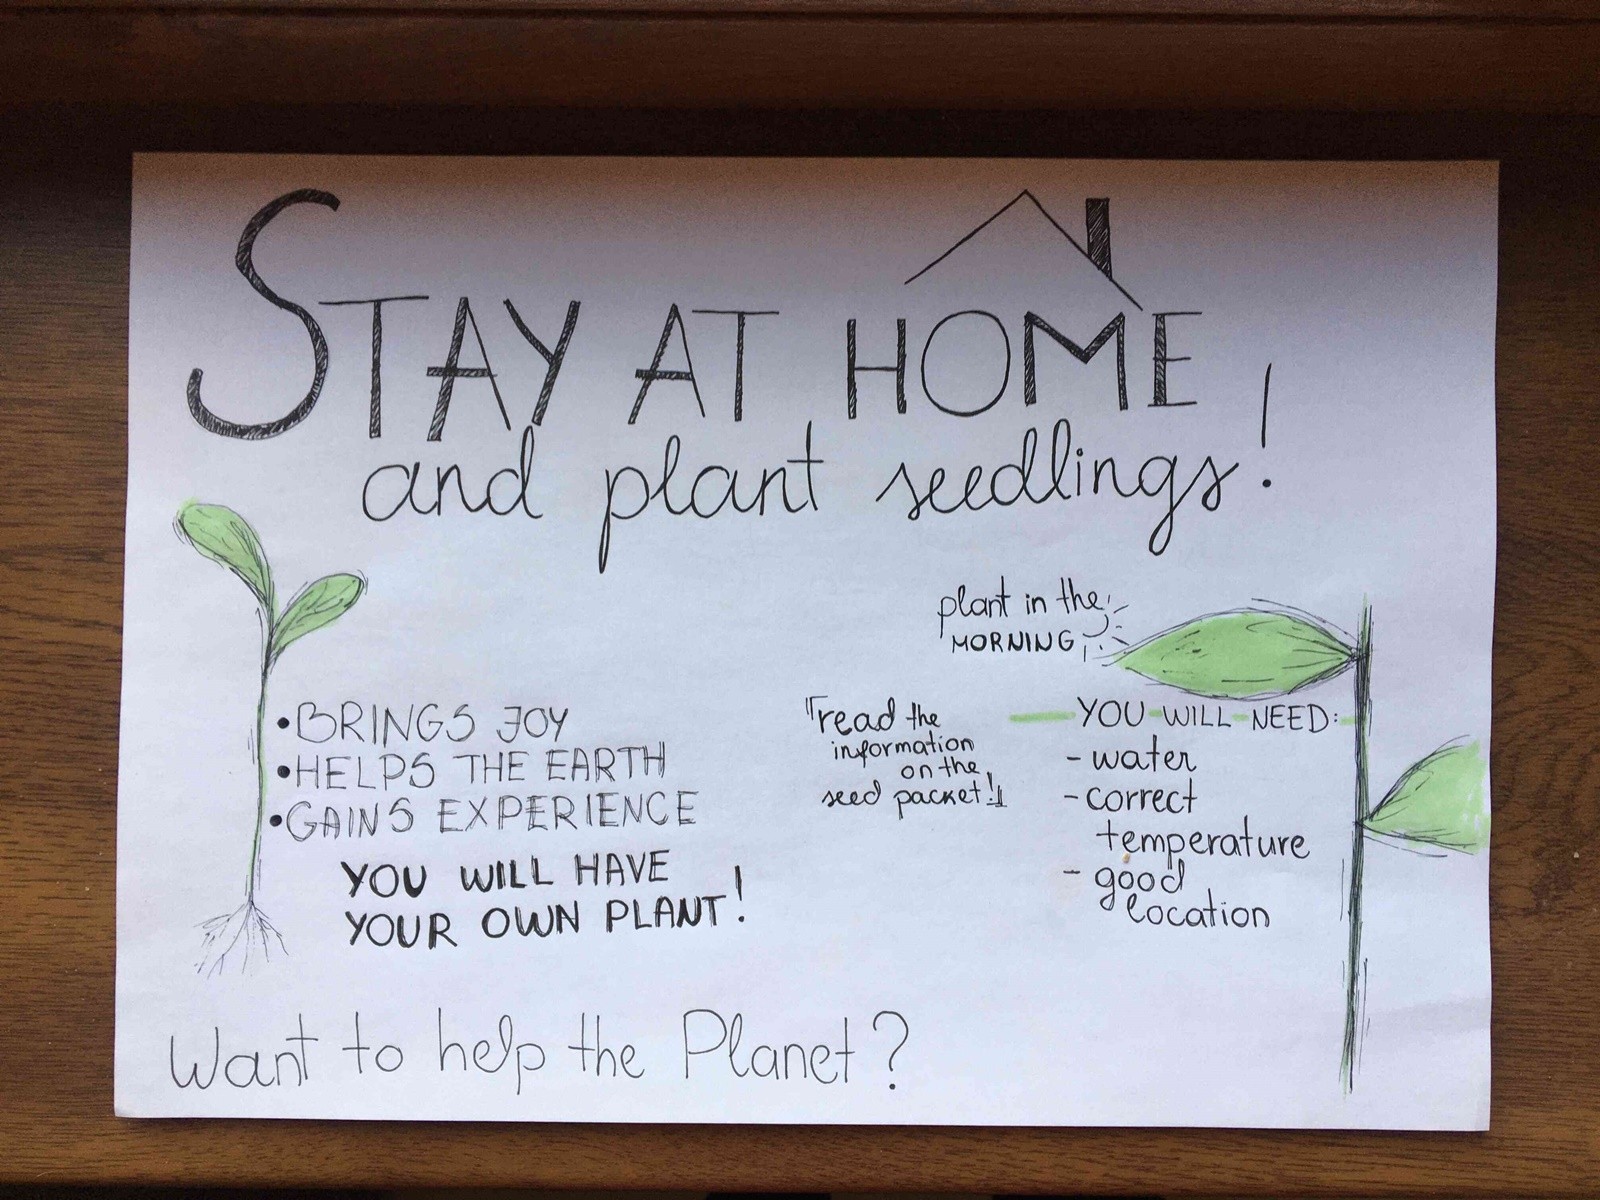 STAY AT HOME
and plant seedlings!
plant in the
MORNING
• BRINGS JOY
• HELPS THE EARTH
• GAINS EXPERIENCE
YOU WILL HAVE
YOUR OWN PLANT!
read the
information
on the
seed packet!
YOU WILL NEED:
- water
- correct
temperature
- good
location
Want to help the Planet?